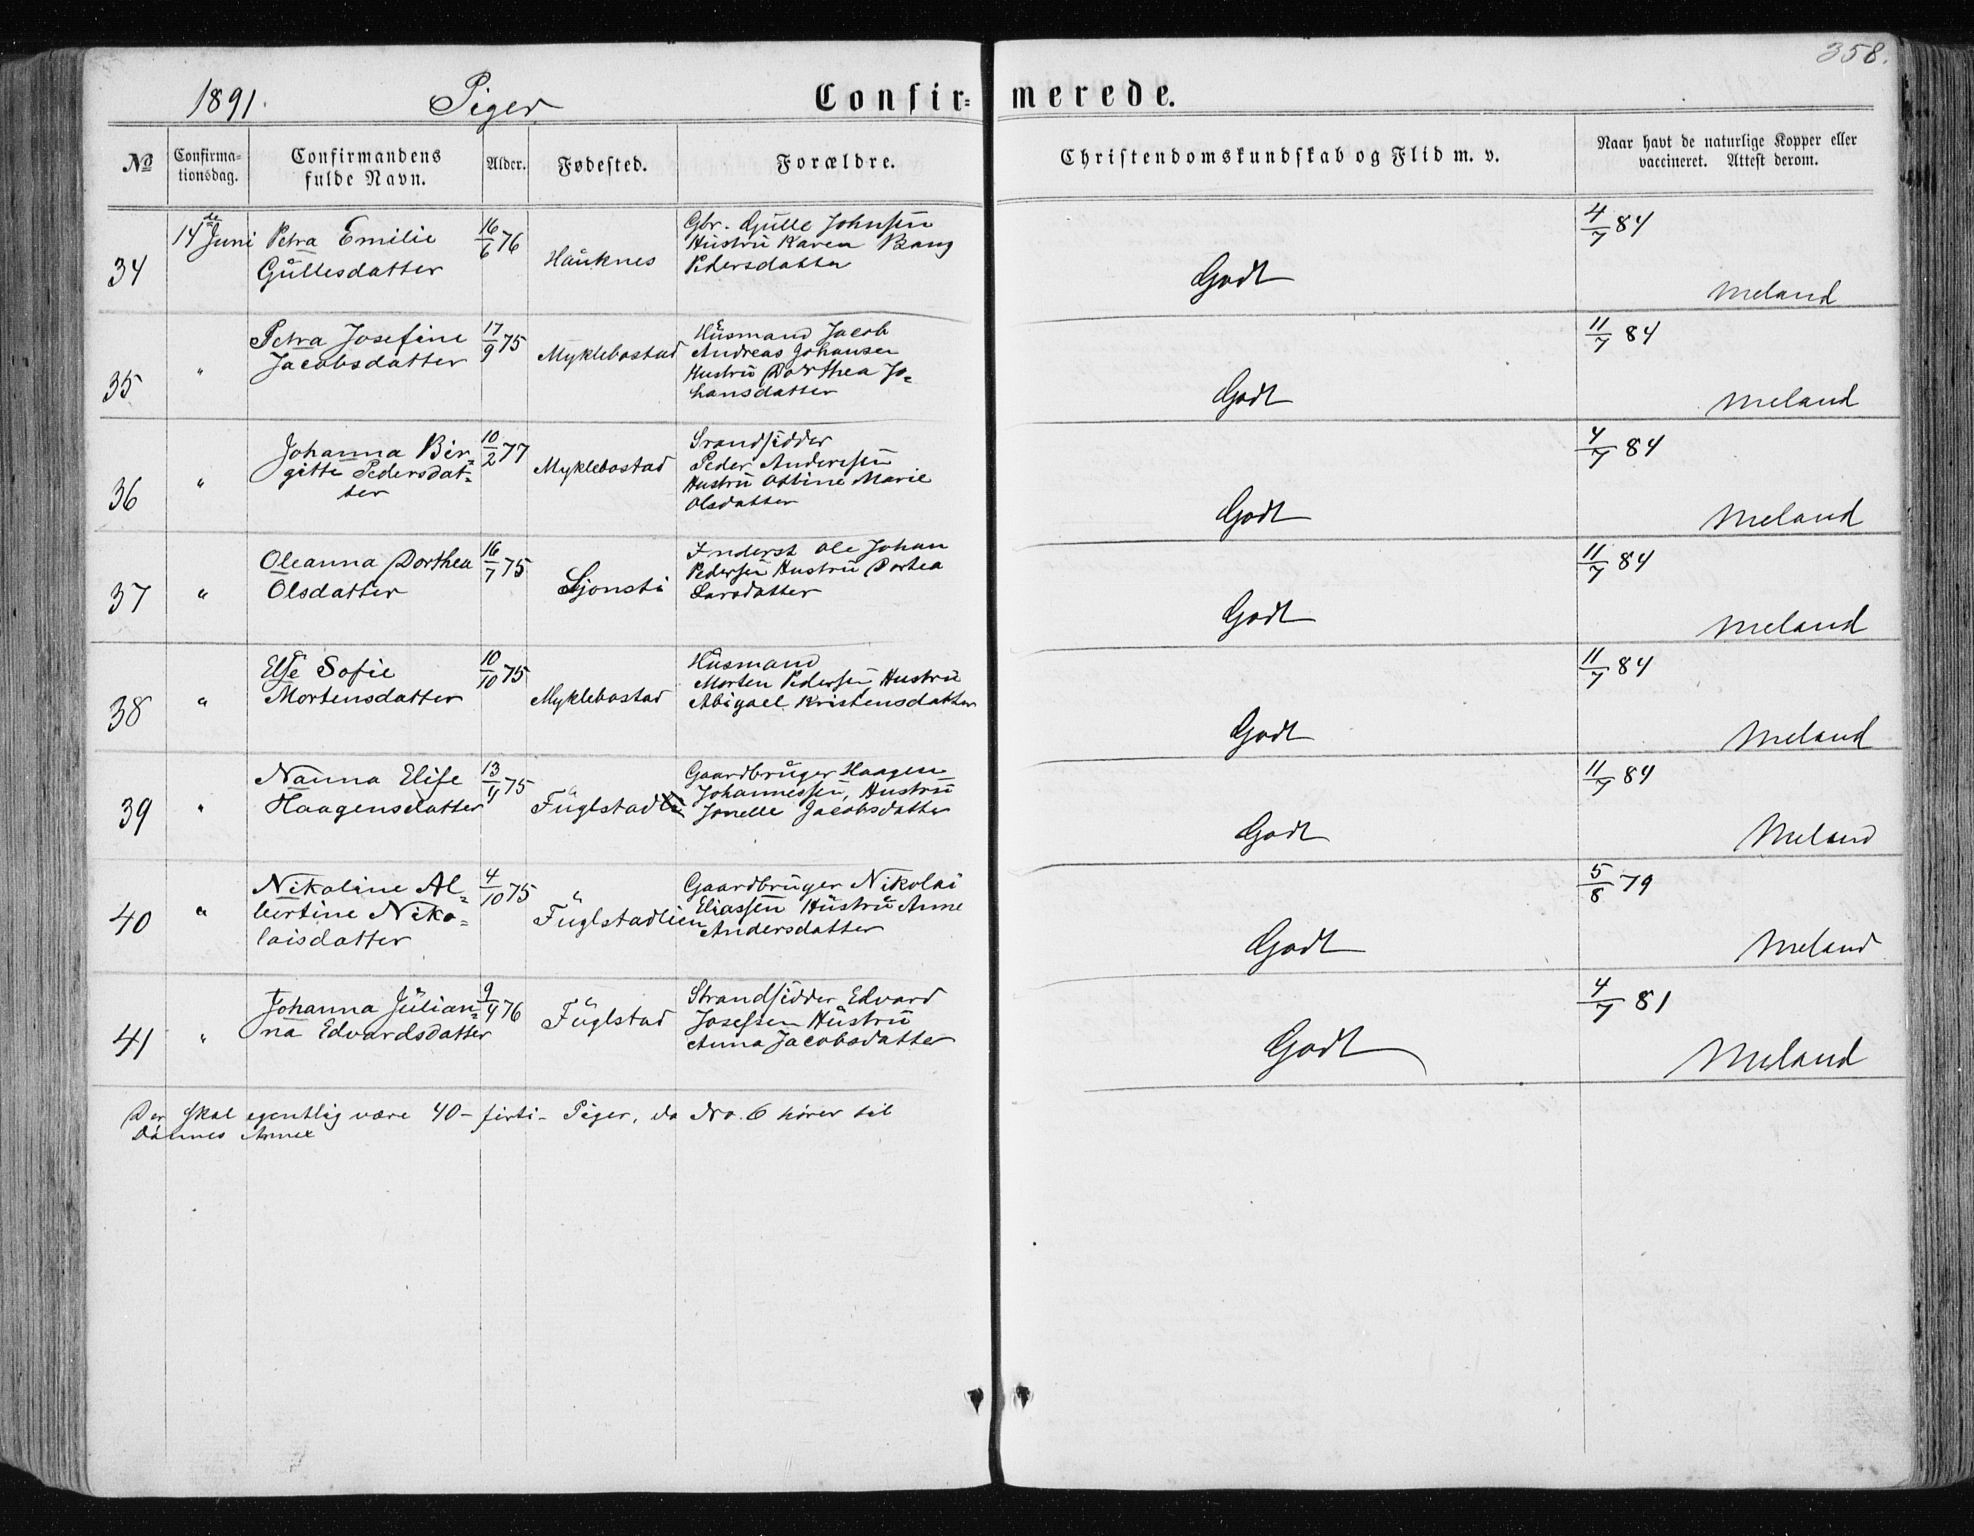 358.
1891. Piger Confir= merede.
No Confirma=tionsdag. Confirmandens fulde Navn. Alder. Fødested. Forældre. Christendomskundskab og Flid m. v. Naar havt de naturlige Kopper eller vaccineret. Attest derom.
34 14de Juni Petra Emilie Gullesdatter 16/6 76 Hauknes Gbr. Gulle Johnsen Hustru Karen Bang Pedersdatter Godt 4/7 84 Meland
35 " Petra Josefine Jacobsdatter 17/9 75 Myklebostad Husmand Jacob Andreas Johansen Hustru Dorthea Jo=hansdatter Godt 11/7 84 Meland
36 " Johanna Bir=gitte Pedersdat=ter 10/2 77 Myklebostad Srandsidder Peder Andersen Hustru Ottine Marie Olsdatter Godt 4/7 84 Meland
37 " Oleanna Dorthea Olsdatter 16/7 75 Sjonsti Inderst Ole Johan Pedersen Hustru Dortea Larsdatter Godt 11/7 84 Meland
38 " Else Sofie Mortensdatter 10/10 75 Myklebostad Husmand Morten Pedersen Hustru Abigael Kristensdatter Godt 11/7 84 Meland
39 " Nanna Elise Haagensdatter 13/4 75 Fuglstadli Gaardbruger Haagen Johannessen, Hustru Jonelle Jacobsdatter Godt 11/7 84 Meland
40 " Nikoline Al=bertine Niko=laisdatter 4/10 75 Fuglstadlien Gaardbruger Nikolai Eliassen Hustru Anne Andersdatter Godt 5/8 79 Meland
41 " Johanna Julian=na Edvardsdatter 9/4 76 Fuglstad Strandsidder Edvard Josefsen Hustru Anna Jacobsdatter Godt 4/7 81 Meland
Der skal egentlig være 40 – firti – Piger, da No. 6 hører til
Dønnes Annex